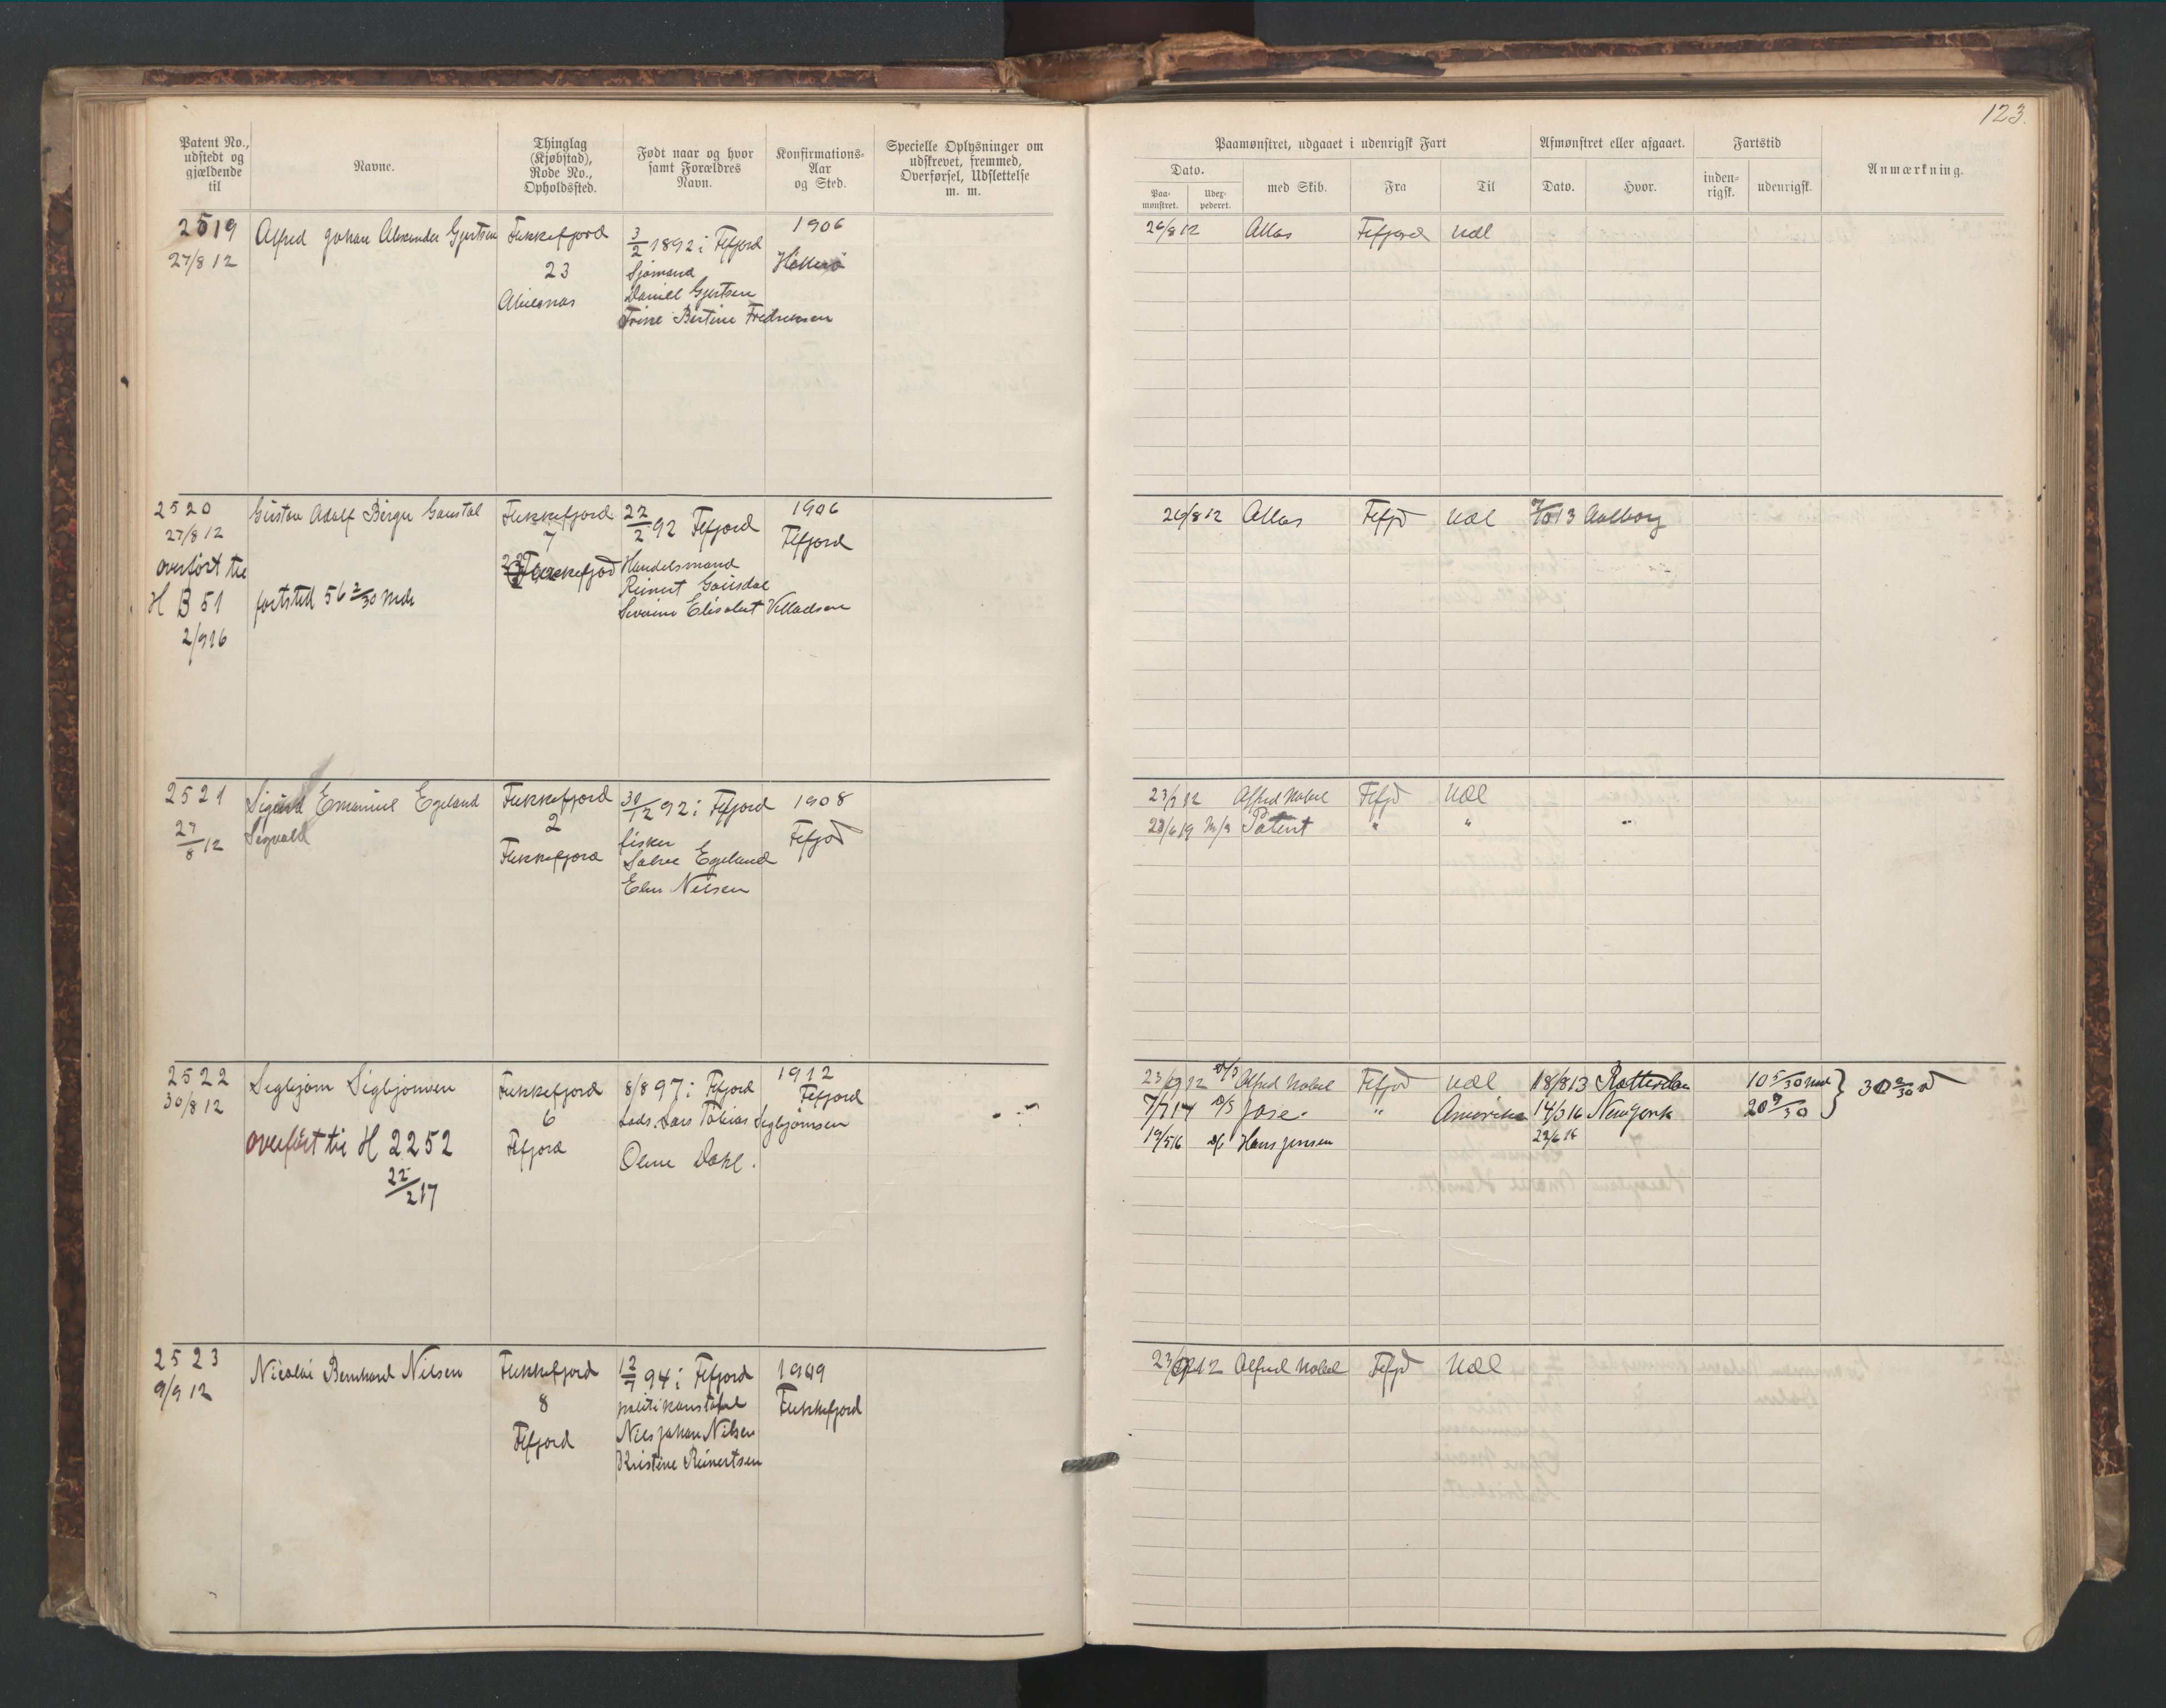 123.
Patent No., udstedt og gjældende til
Navne.
Thinglag (Kjøbstad), Rode No., Opholdssted.
Født naar og hvor samt Forældres Navn.
Konfirmations-Aar og Sted.
Specielle Oplysninger om udskrevet, fremmed, Overførsel, Udslettelse m. m.
Paamønstret, udgaaet i udenrigsk Fart
Dato.
Paa-mønstret.
Udex-pederet.
med Skib.
Fra
Til
Afmønstret eller afgaaet.
Dato.
Hvor.
Fartstid
inden-rigsk.
udenrigsk.
Anmærkning.
2519
27/8 12
Alfred Johan Alexander Gjertsen
Flekkefjord
23
Abelsnæs
3/2 1892 i Fefjord
Sjømand
Daniel Gjertsen
Trine Bertine Fredriksen
1906
Hitterø
26/8 12 Atlas Fefjord Udl
2520
27/8 12
overført til
H B 51
2/9 16
Gustav Adolf Birger Gausdal
fartstid 56 2/30 mdr
Flekkefjord
7
Flekkefjord
22/2 92 Fefjord
Handelsmand
Reinert Gausdal
Elisabet Villadsen
1906
Fefjord
26/8 12 Atlas Fefjd Udl 7/10 13 Aalborg
2521
27/8 12
Sigurd Emanuel Egeland
Sigvald
Flekkefjord
2
Flekkefjord
30/12 92 i Fefjord
fisker
Salve Egeland
Elen Nilsen
1908
Fefjod
Alfred Nobel Fefjd Udl
Patent " "
2522
30/8 12
Sigbjørn Sigbjørnsen
overført til H 2252
22/2 17
Flekkefjord
6
Fefjord
8/8 97 i Fefjord
Lods Lars Tobias Sigbjørnsen
Oline Dahl.
1912
Fefjord
23/9 12 D/S Alfred Nobel Fefjod Udl 18/8 13 Rotterdam 10 5/30 md
7/7 14 D/S Jose. " Amerika 14/3 16 New York 20 7/30
19/5 16 Hans Jensen
2523
9/9 12
Nicolai Bernhard Nilsen
Flekkefjord
8
Fefjord
12/7 94 i Fefjord
politikonstabel
Nils Johan Nilsen
Kristine Reinertsen
1909
Flekkefjord
Alfred Nobel Fefjd Udl